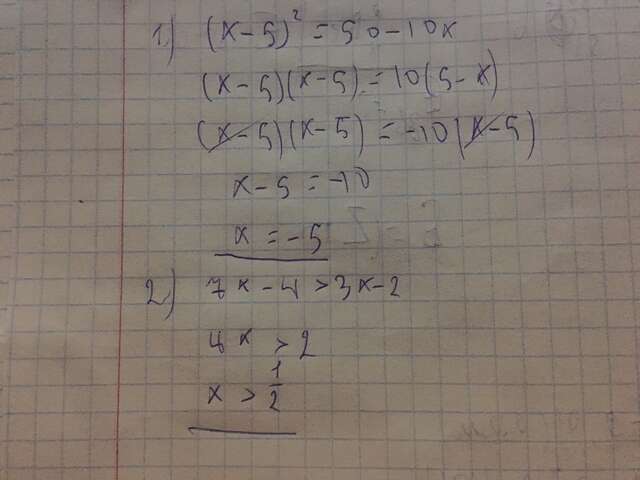 1) (x-5)² = 50-10x
(x-5)(x-5) = 10(5-x)
(x-5)(x-5) = -10(x-5)
x-5 = -10
x = -5
2) 7x-4 > 3x-2
4x > 2
x > 1/2